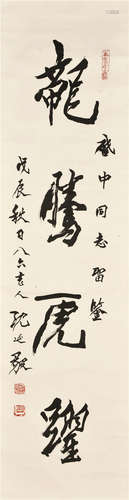 龍騰虎躍
盛中同志留鑒
戊辰秋月八六老人沈延毅